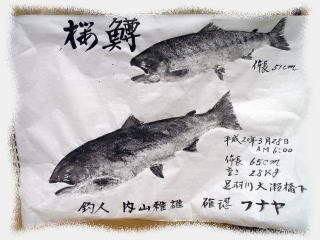 桜鱒
体長 51cm
平成20年3月28日
AM 6:00
体長 65cm
重さ 2.8kg
足羽川大瀬橋下
釣人 内山雅雄 確認 フナヤ